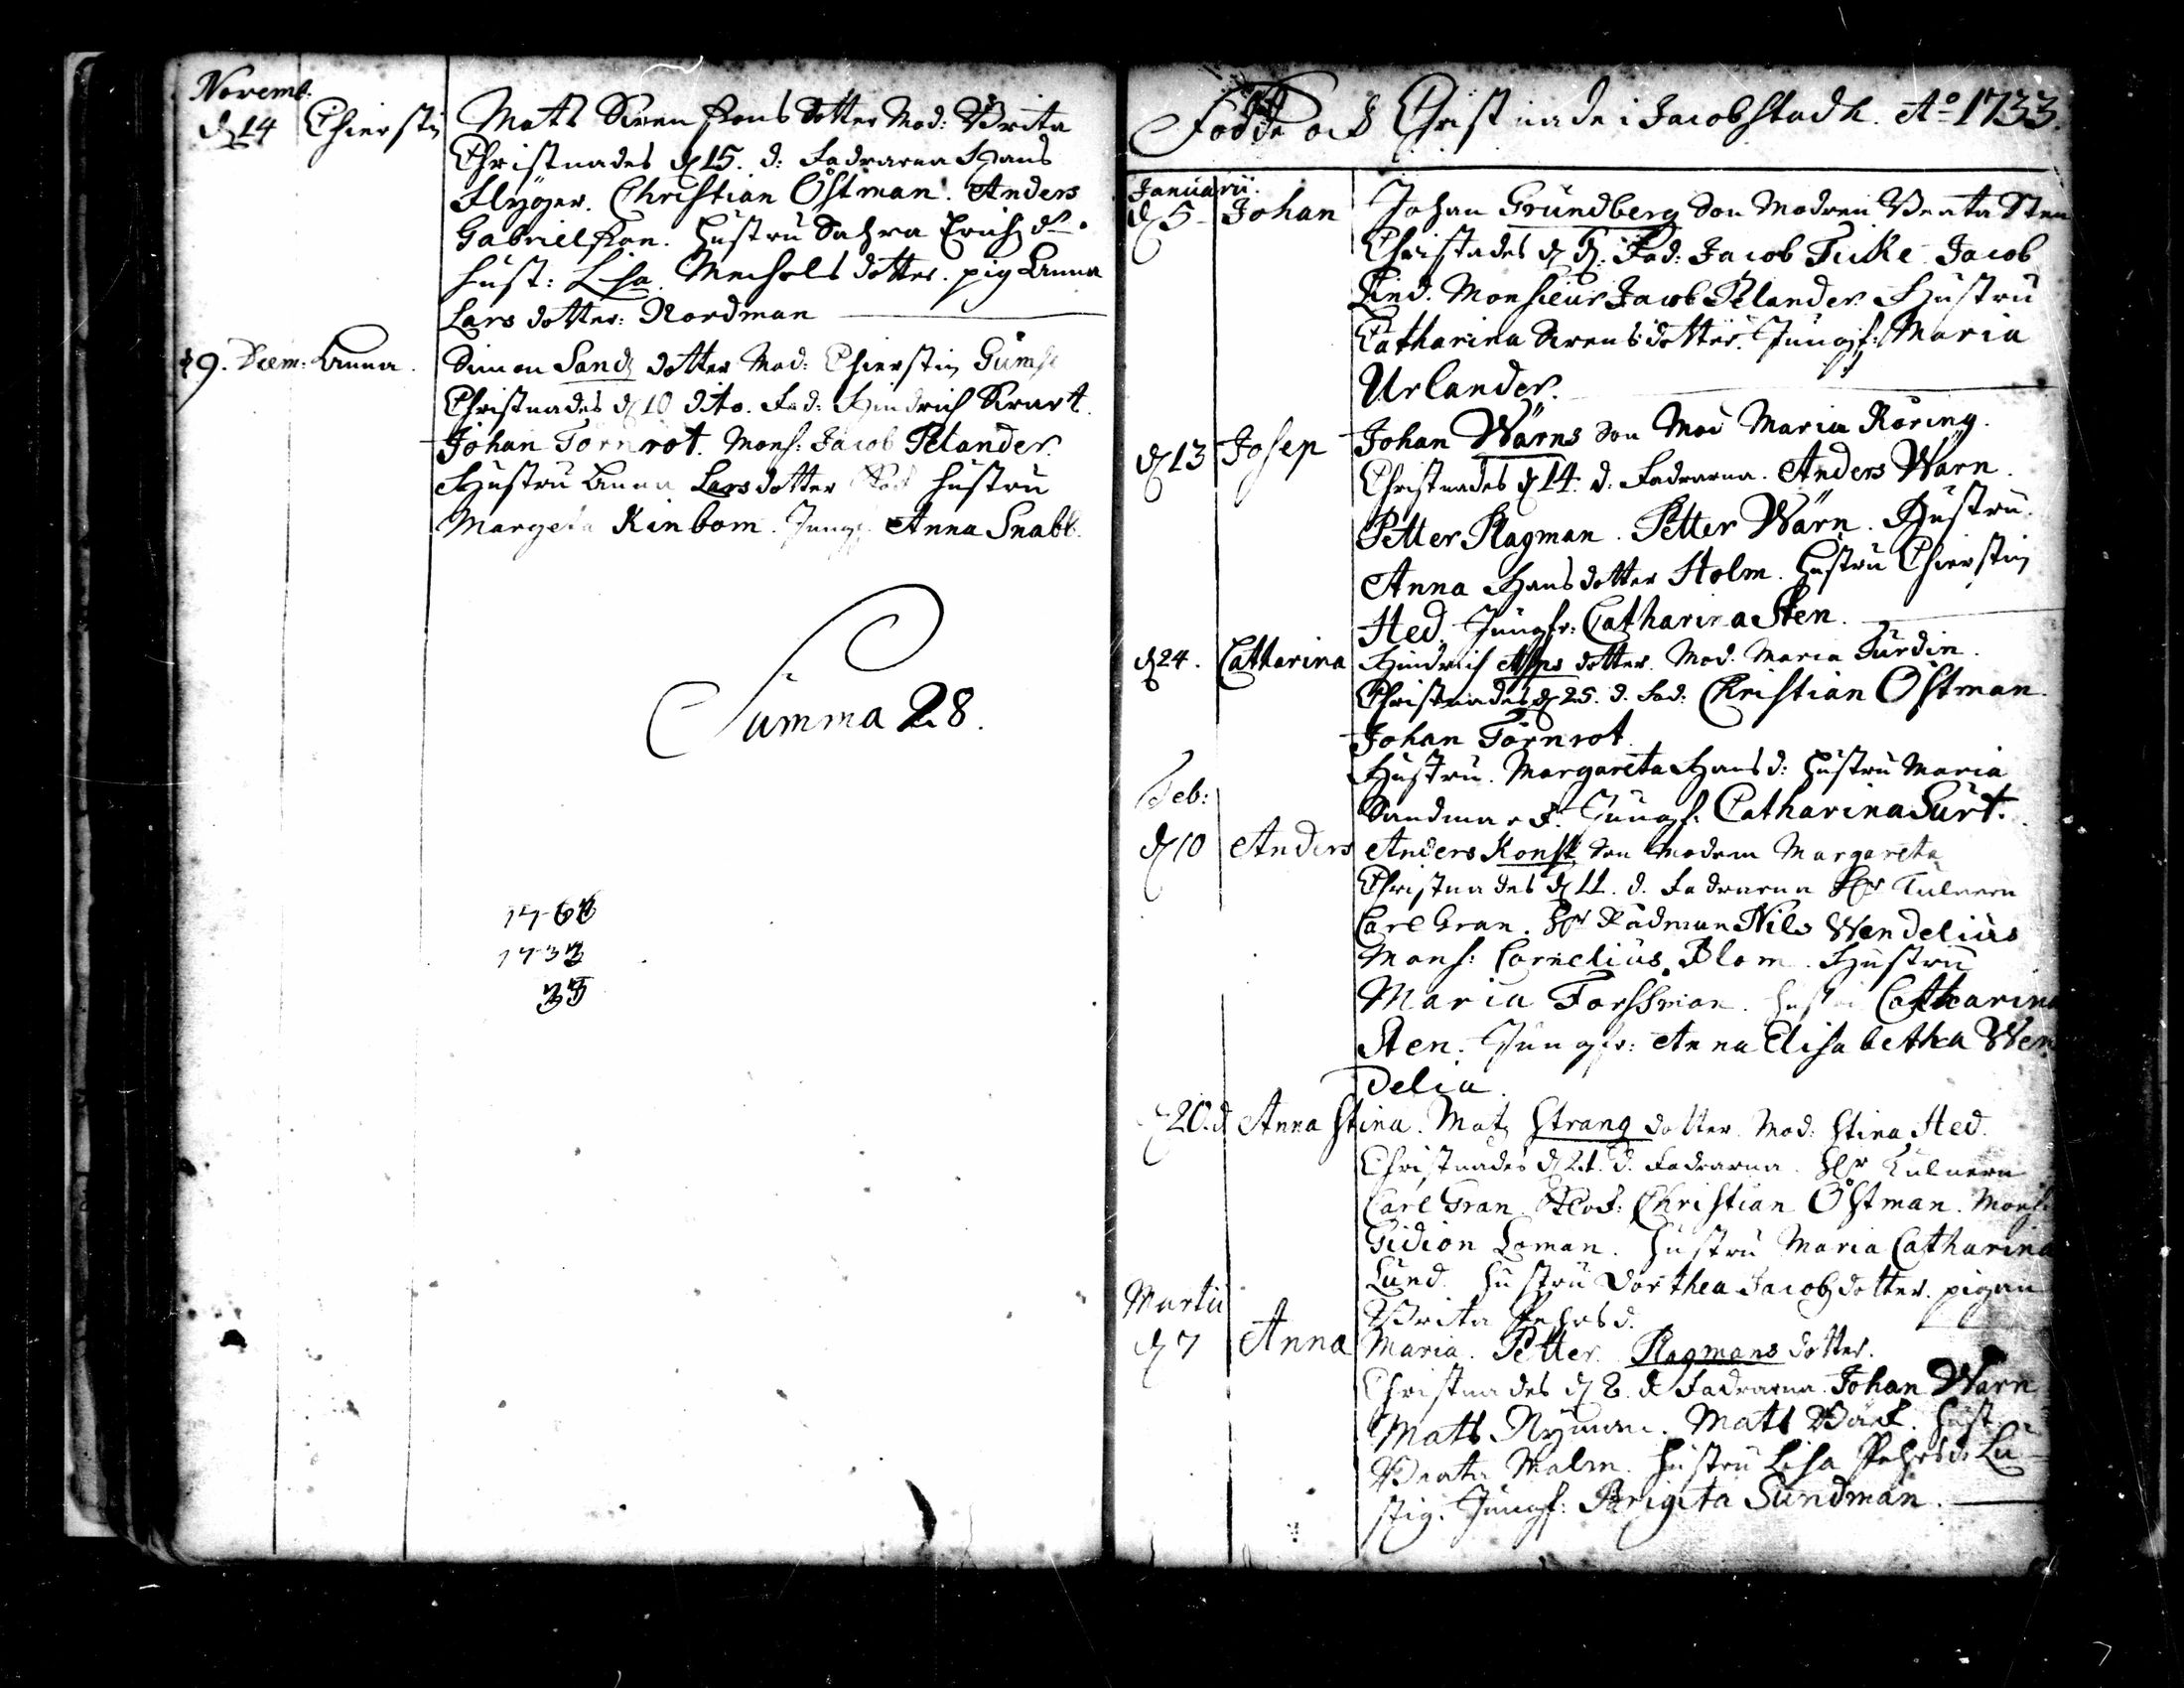 Novemb.
d 14 Chierstin Matts Swenssons dotter Mod: Brita
Christnades d 15. d: Fadrarna Hans
Flygger. Christian Östman. Anders
Gabrielsson. hustru Sahra Erichsdr.
hust: Lisa Mechels dotter. pig Anna
Lars dotter: Nordman
9. Decem: Anna. Simon Sands dotter Mod: Chierstin
Christnades d 10 dito. Fad: Hindrich
Johan Törnrot. Mons: Jacob Pelander.
Hustru Anna Larsdotter hustru
Margeta Kinbom. Jungf. Anna Snabb.
Summa 28.
1733
33
Födde och Christnade i Jacobstadh. Ao 1733.
Januarii.
d 5 Johan Johan Grundberg Son Modren Beata Sten
Christades d Fad: Jacob Jacob
Lind. Monsieur Jacob Pelander Hustru
Catharina Swensdotter. Jungf: Maria
Urlander.
d 13 Josep Johan Wärns Son Mod Maria Röring.
Christnades d 14. d. Fadrarna. Anders Wärn.
Petter Plagman. Petter Wärn. Hustru
Anna Hansdotter Holm. hustru Chierstin
Hed. Jungfr: Catharina Sten.
d 24. Catharina Hindrich dotter. Mod. Maria
Christnades d 25. d. Fad: Christian Östman.
Johan Törnrot
Hustru. Margareta Hansd: hustru Maria
Feb: Sandmark. Jungf. Catharina Surt.
d 10 Anders Anders Konst Son Modren Margareta
Christnades d 11. d. Fadrarna Hr
Carl Gran. Hr Rådman Nils Wendelius
Mons: Cornelius Blom. Hustru
Maria Forssman. hustru Catharina
Sten. Jungfr: Anna Elisabetha Wen
delia.
20. d Anna Stina. Mats Strang dotter. Mod: Stina Hed.
Christnades d 21. d. Fadrarna. Hr
Carl Gran. Christian Östman. Mons:
Gidion Loman. hustru Maria Catharina
Lund. hustru Dorthea Jacobsdotter. pigan
Martii Brita Pehrsd.
d 7 Anna Maria. Petter. Plagmans dotter.
Christnades d 8. d Fadrarna. Johan Wärn
Matts Nyman. Matts Bäck. hust.
Beata Malm. hustru Lisa Pehrsd. Lu-
stig. Jungf: Brigita Sundman.